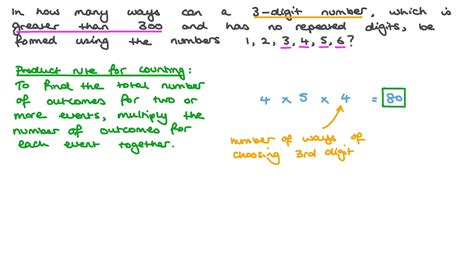 In how many ways can a 3-digit number, which is
greater than 300 and has no repeated digits, be
formed using the numbers 1, 2, 3, 4, 5, 6?
Product rule for counting:
To find the total number
of outcomes for two or
more events, multiply the
number of outcomes for
each event together.
4 x 5 x 4 = 80
number of ways of
choosing 3rd digit